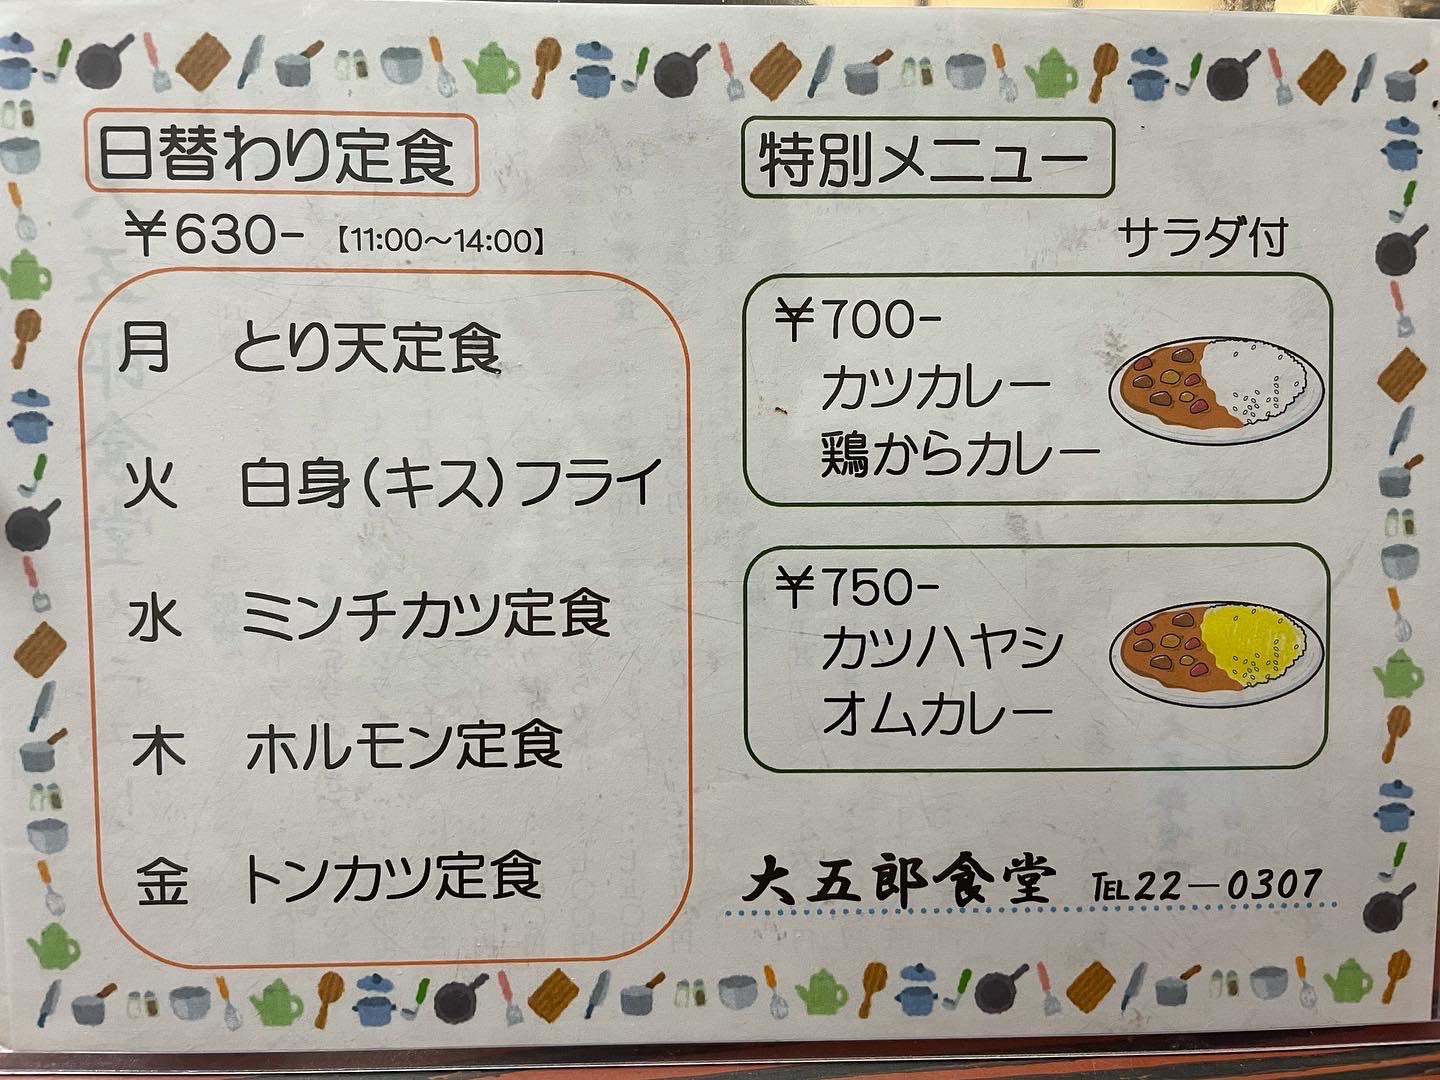 日替わり定食
￥630- 【11:00～14:00】
月 とり天定食
火 白身(キス)フライ
水 ミンチカツ定食
木 ホルモン定食
金 トンカツ定食
特別メニュー
サラダ付
￥700-
カツカレー
鶏からカレー
￥750-
カツハヤシ
オムカレー
大五郎食堂 TEL22－0307